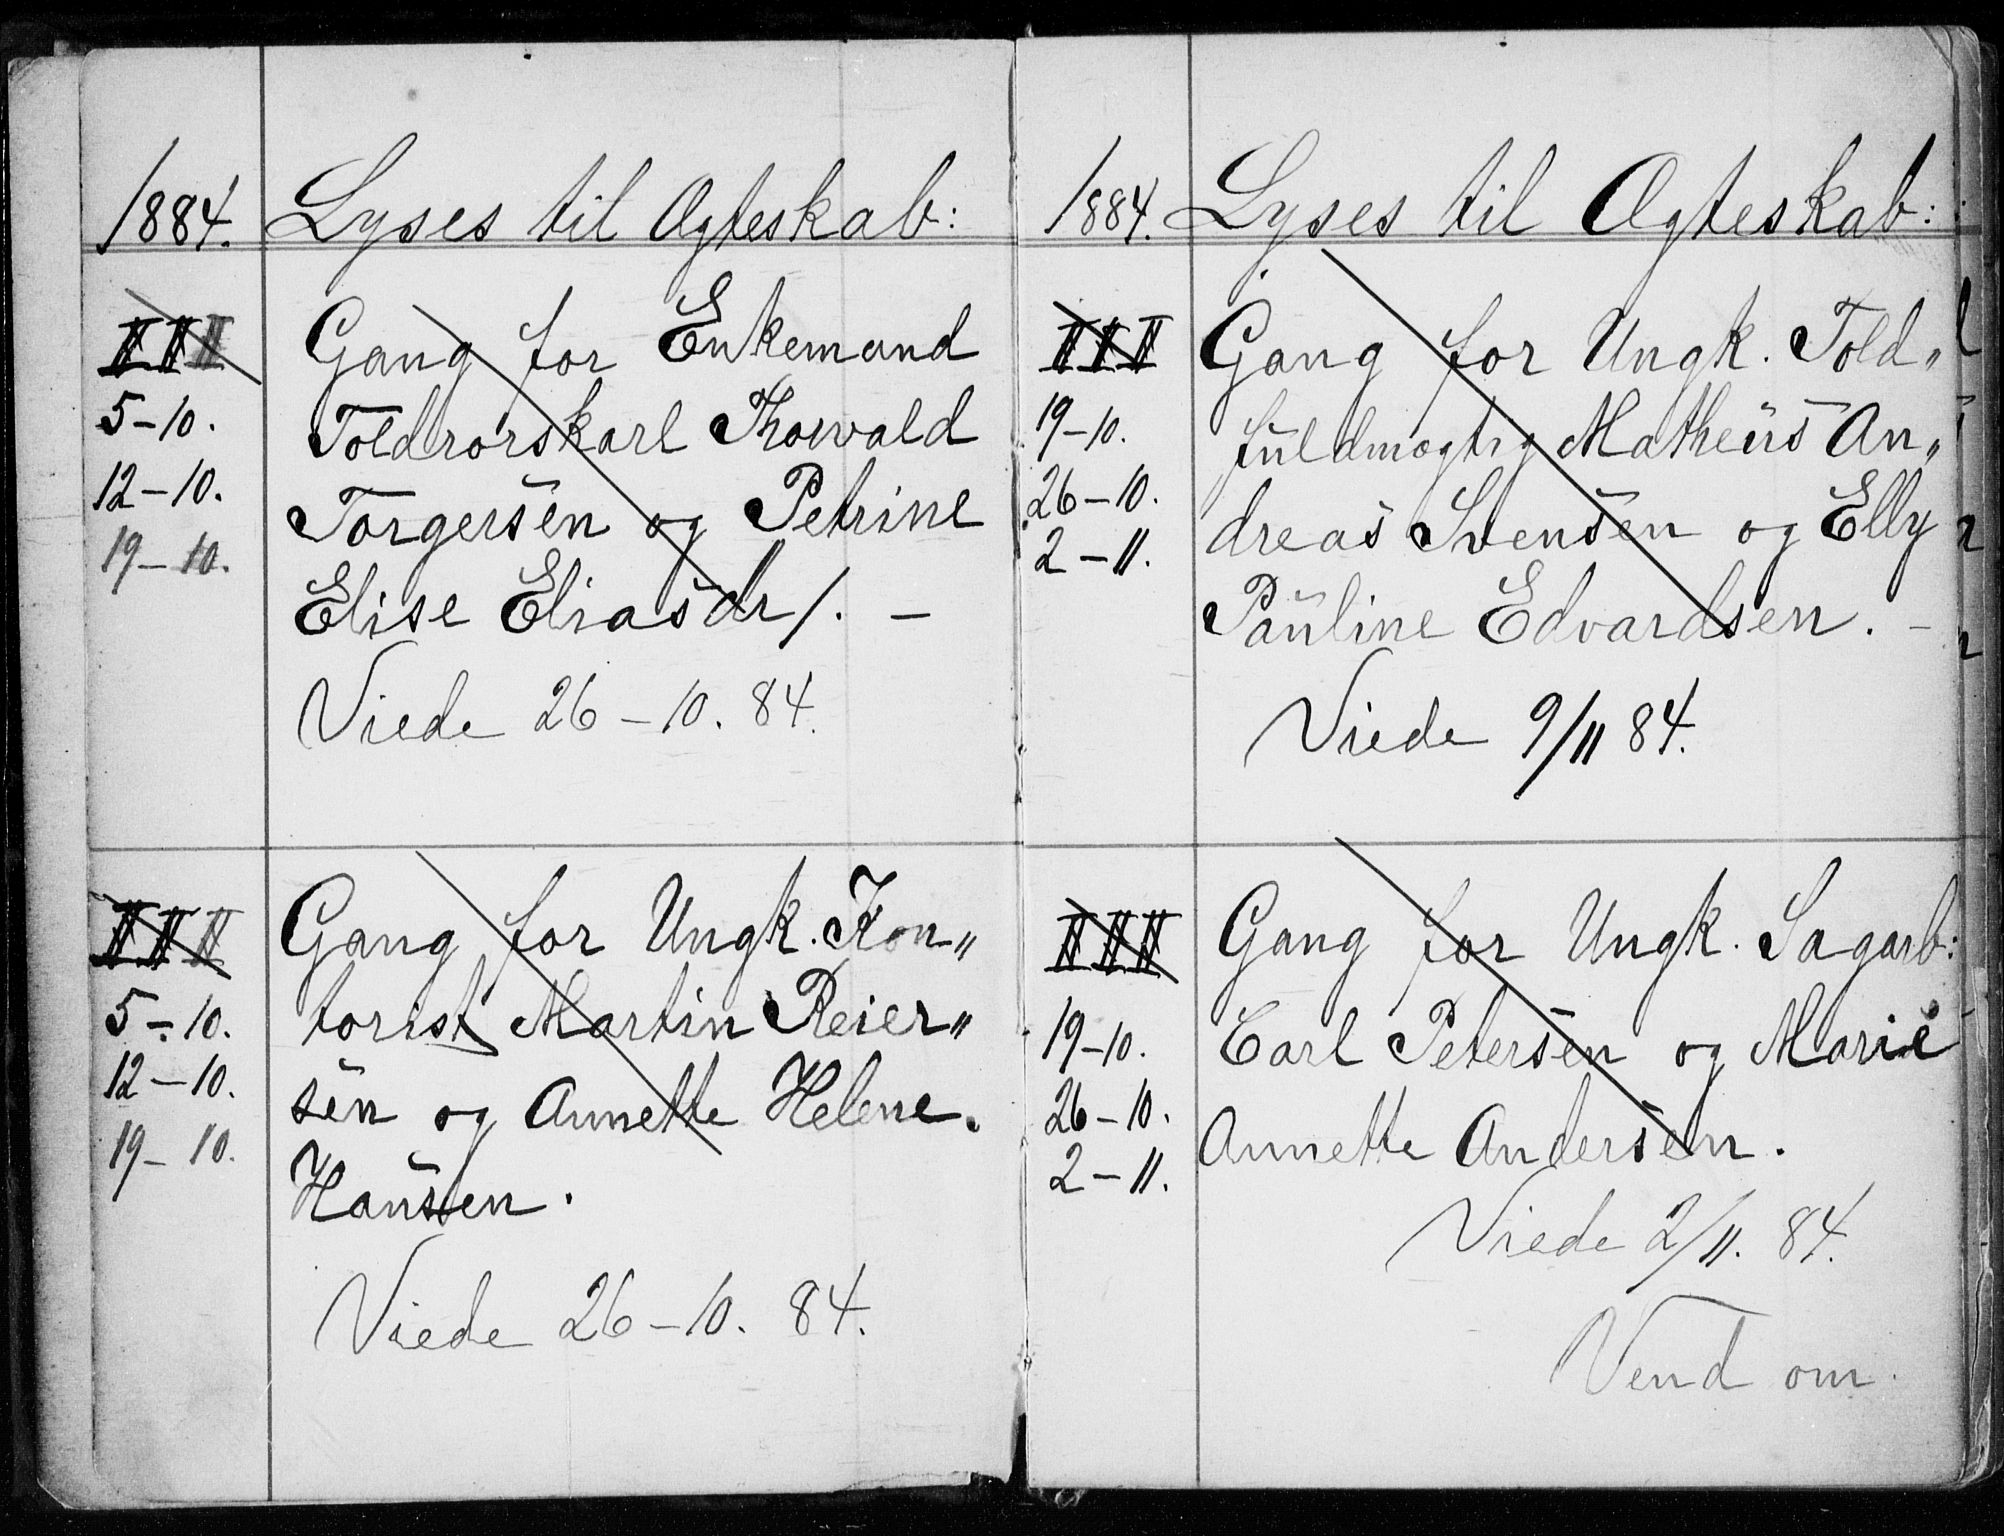 1884. Lyses til Ægteskab:
III
5-10.
12-10.
19-10.
Gang for Enkemand
Toldrorskarl Thorvald
Torgersen og Petrine
Elise Eliasdr/. -
Viede 26-10. 84.
III
5-10.
12-10.
19-10.
Gang for Ungk. Kon„
torist Martin Reier„
sen og Annette Helene.
Hansen.
Viede 26-10. 84.
1884. Lyses til Ægteskab:
III
19-10.
26-10.
2-11.
Gang for Ungk. Told„
fuldmægtig Matheus An„
dreas Svensen og Elly
Pauline Edvardsen. -
Viede 9/11 84.
III
19-10.
26-10.
2-11.
Gang for Ungk. Sagarb:
Carl Petersen og Marie
Annette Andersen.
Viede 2/11. 84.
Vend om.